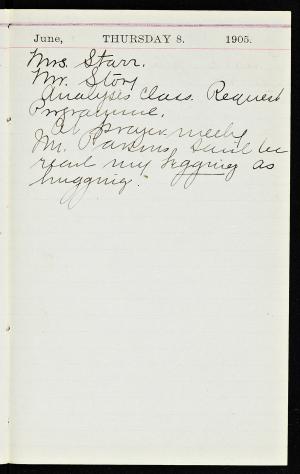 June, THURSDAY 8. 1905.
Mrs. Starr.
Mr. Story
Analysis Class. Request
Programme.
At prayer meet'g
Mr. Parsons said he
read my begging as
hugging.